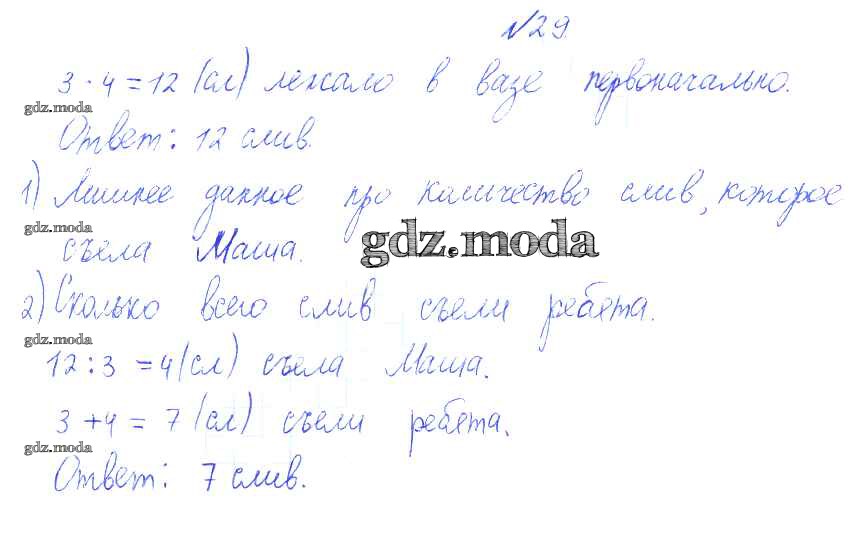 №29.
3 · 4 = 12 (сл) лежало в вазе первоначально.
gdz.moda
Ответ: 12 слив.
1) Лишнее данное про количество слив, которое
gdz.moda
съела Маша.
gdz.moda
2) Сколько всего слив съели ребята.
gdz.moda
12 : 3 = 4 (сл) съела Маша.
3 + 4 = 7 (сл) съели ребята.
gdz.moda
Ответ: 7 слив.
gdz.moda